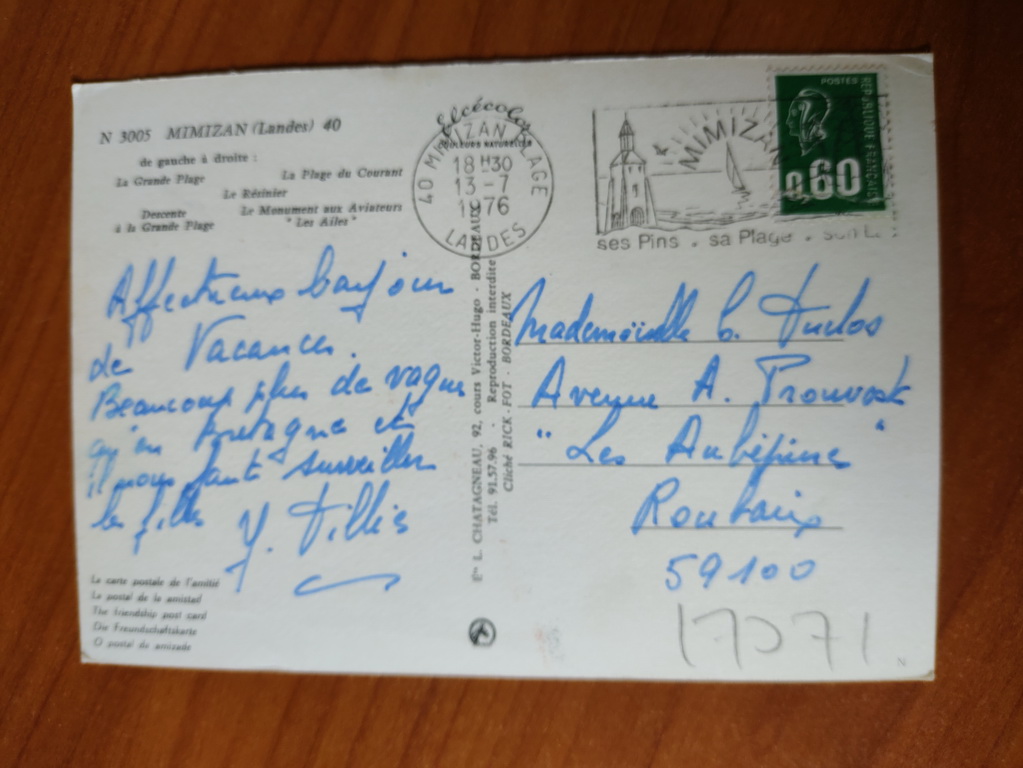 N 3005 MIMIZAN (Landes) 40
de gauche à droite :
La Grande Plage La Plage du Courant
Le Résinier
Descente Le Monument aux Aviateurs
à la Grande Plage "Les Ailes"
Affectueux bonjour
de Vacances.
Beaucoup plus de vague
qu'en Bretagne et
il nous faut surveiller
les filles
Y. Tillie
La carte postale de l'amitié
La postal de la amistad
The friendship post card
Die Freundschaftskarte
O postal da amizade
elcécolor
COULEURS NATURELLES
40 MIMIZAN PLAGE
18 H30
13 -7
1976
LANDES
Ets L. CHATAGNEAU, 92, cours Victor-Hugo - BORDEAUX
Tél. 91.57.96 - Reproduction interdite
Cliché RICK-FOT - BORDEAUX
MIMIZAN
ses Pins . sa Plage .
POSTES
REPUBLIQUE FRANÇAISE
0.60
Mademoiselle C. Duclos
Avenue A. Prouvost
"Les Aubépines"
Roubaix
59100
17071
N